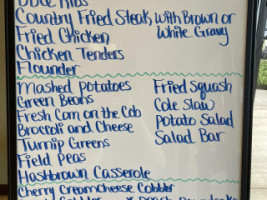 Country Fried Steak, with Brown or
White Gravy
Fried Chicken
Chicken Tenders
Flounder
Mashed Potatoes
Green Beans
Fresh Corn on the Cob
Broccoli and Cheese
Turnip Greens
Field Peas
Hashbrown Casserole
Fried Squash
Cole Slaw
Potato Salad
Salad Bar
Cherry Creamcheese Cobbler